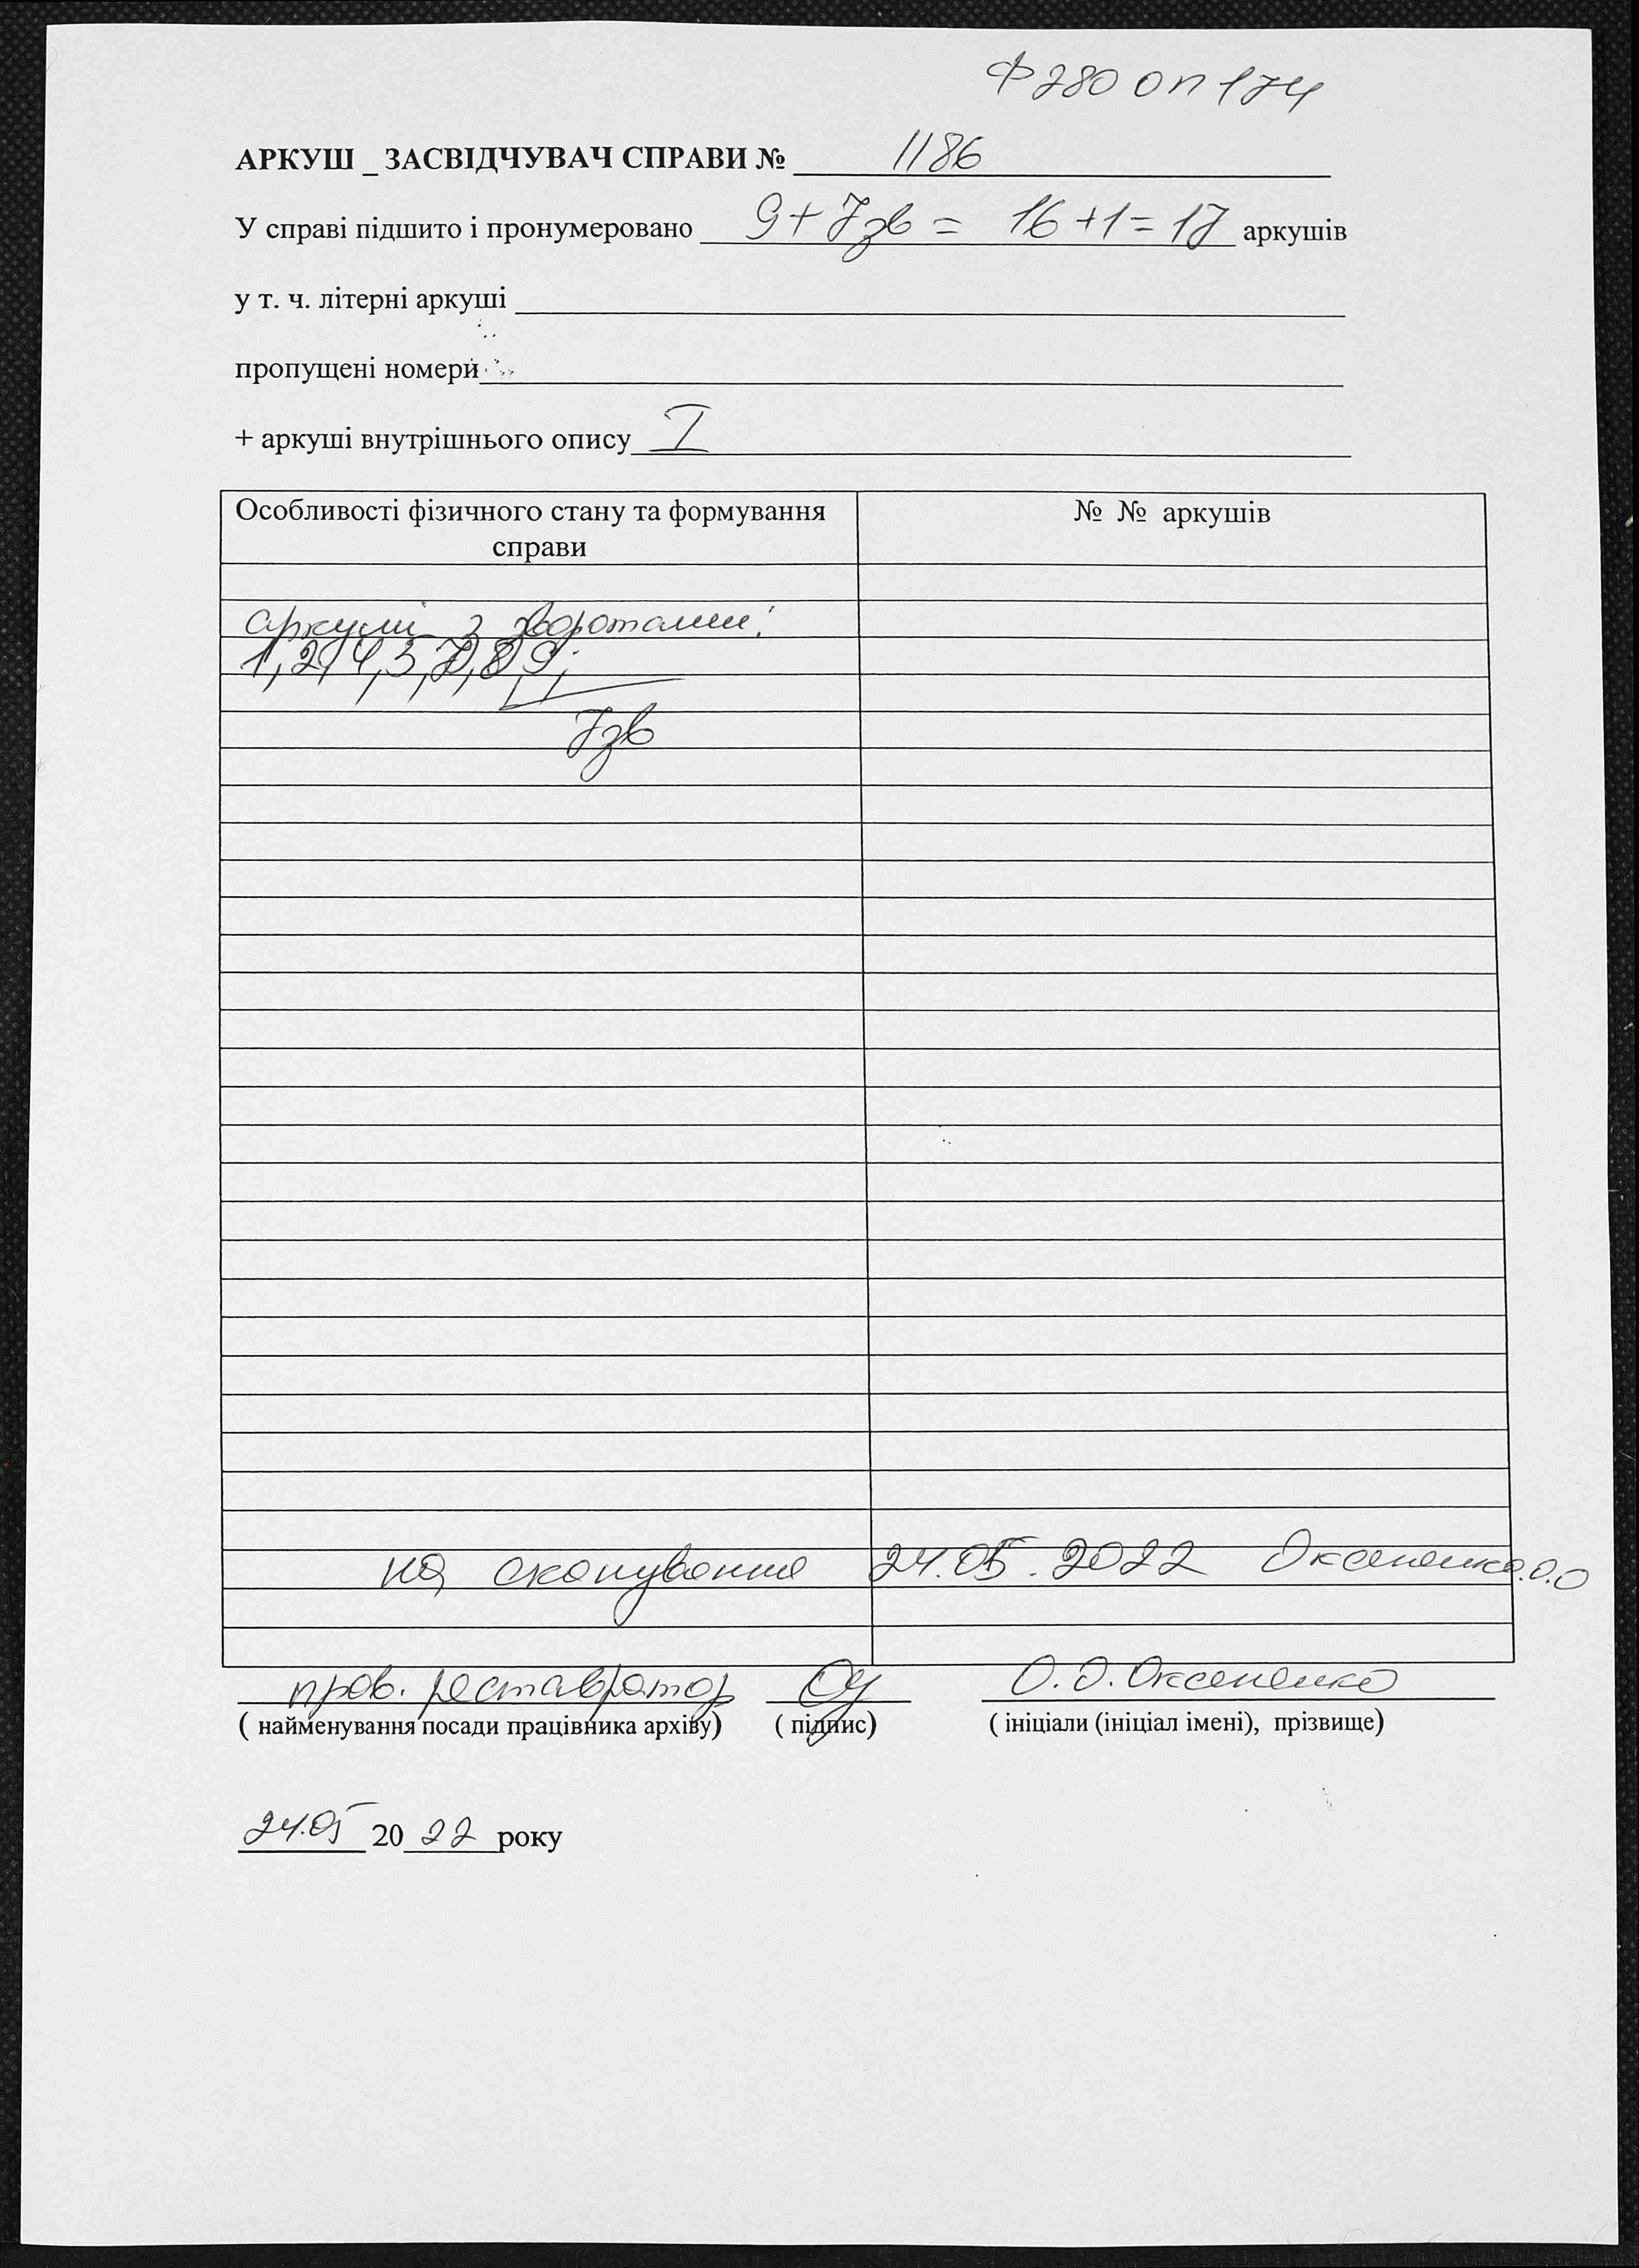 Ф 280 оп 174
АРКУШ _ ЗАСВІДЧУВАЧ СПРАВИ № 1186
У справі підшито і пронумеровано 9+7зв = 16+1=17 аркушів
у т. ч. літерні аркуші
пропущені номери
+ аркуші внутрішнього опису I
Особливості фізичного стану та формування справи
№ № аркушів
аркуші з зворотами:
1,2,4,5,7,8,9;
7зв
на сканування 24.05.2022 Оксененко.О.О
пров. реставратор О.О.Оксененко
( найменування посади працівника архіву) ( підпис) ( ініціали (ініціал імені), прізвище)
24.05 2022 року